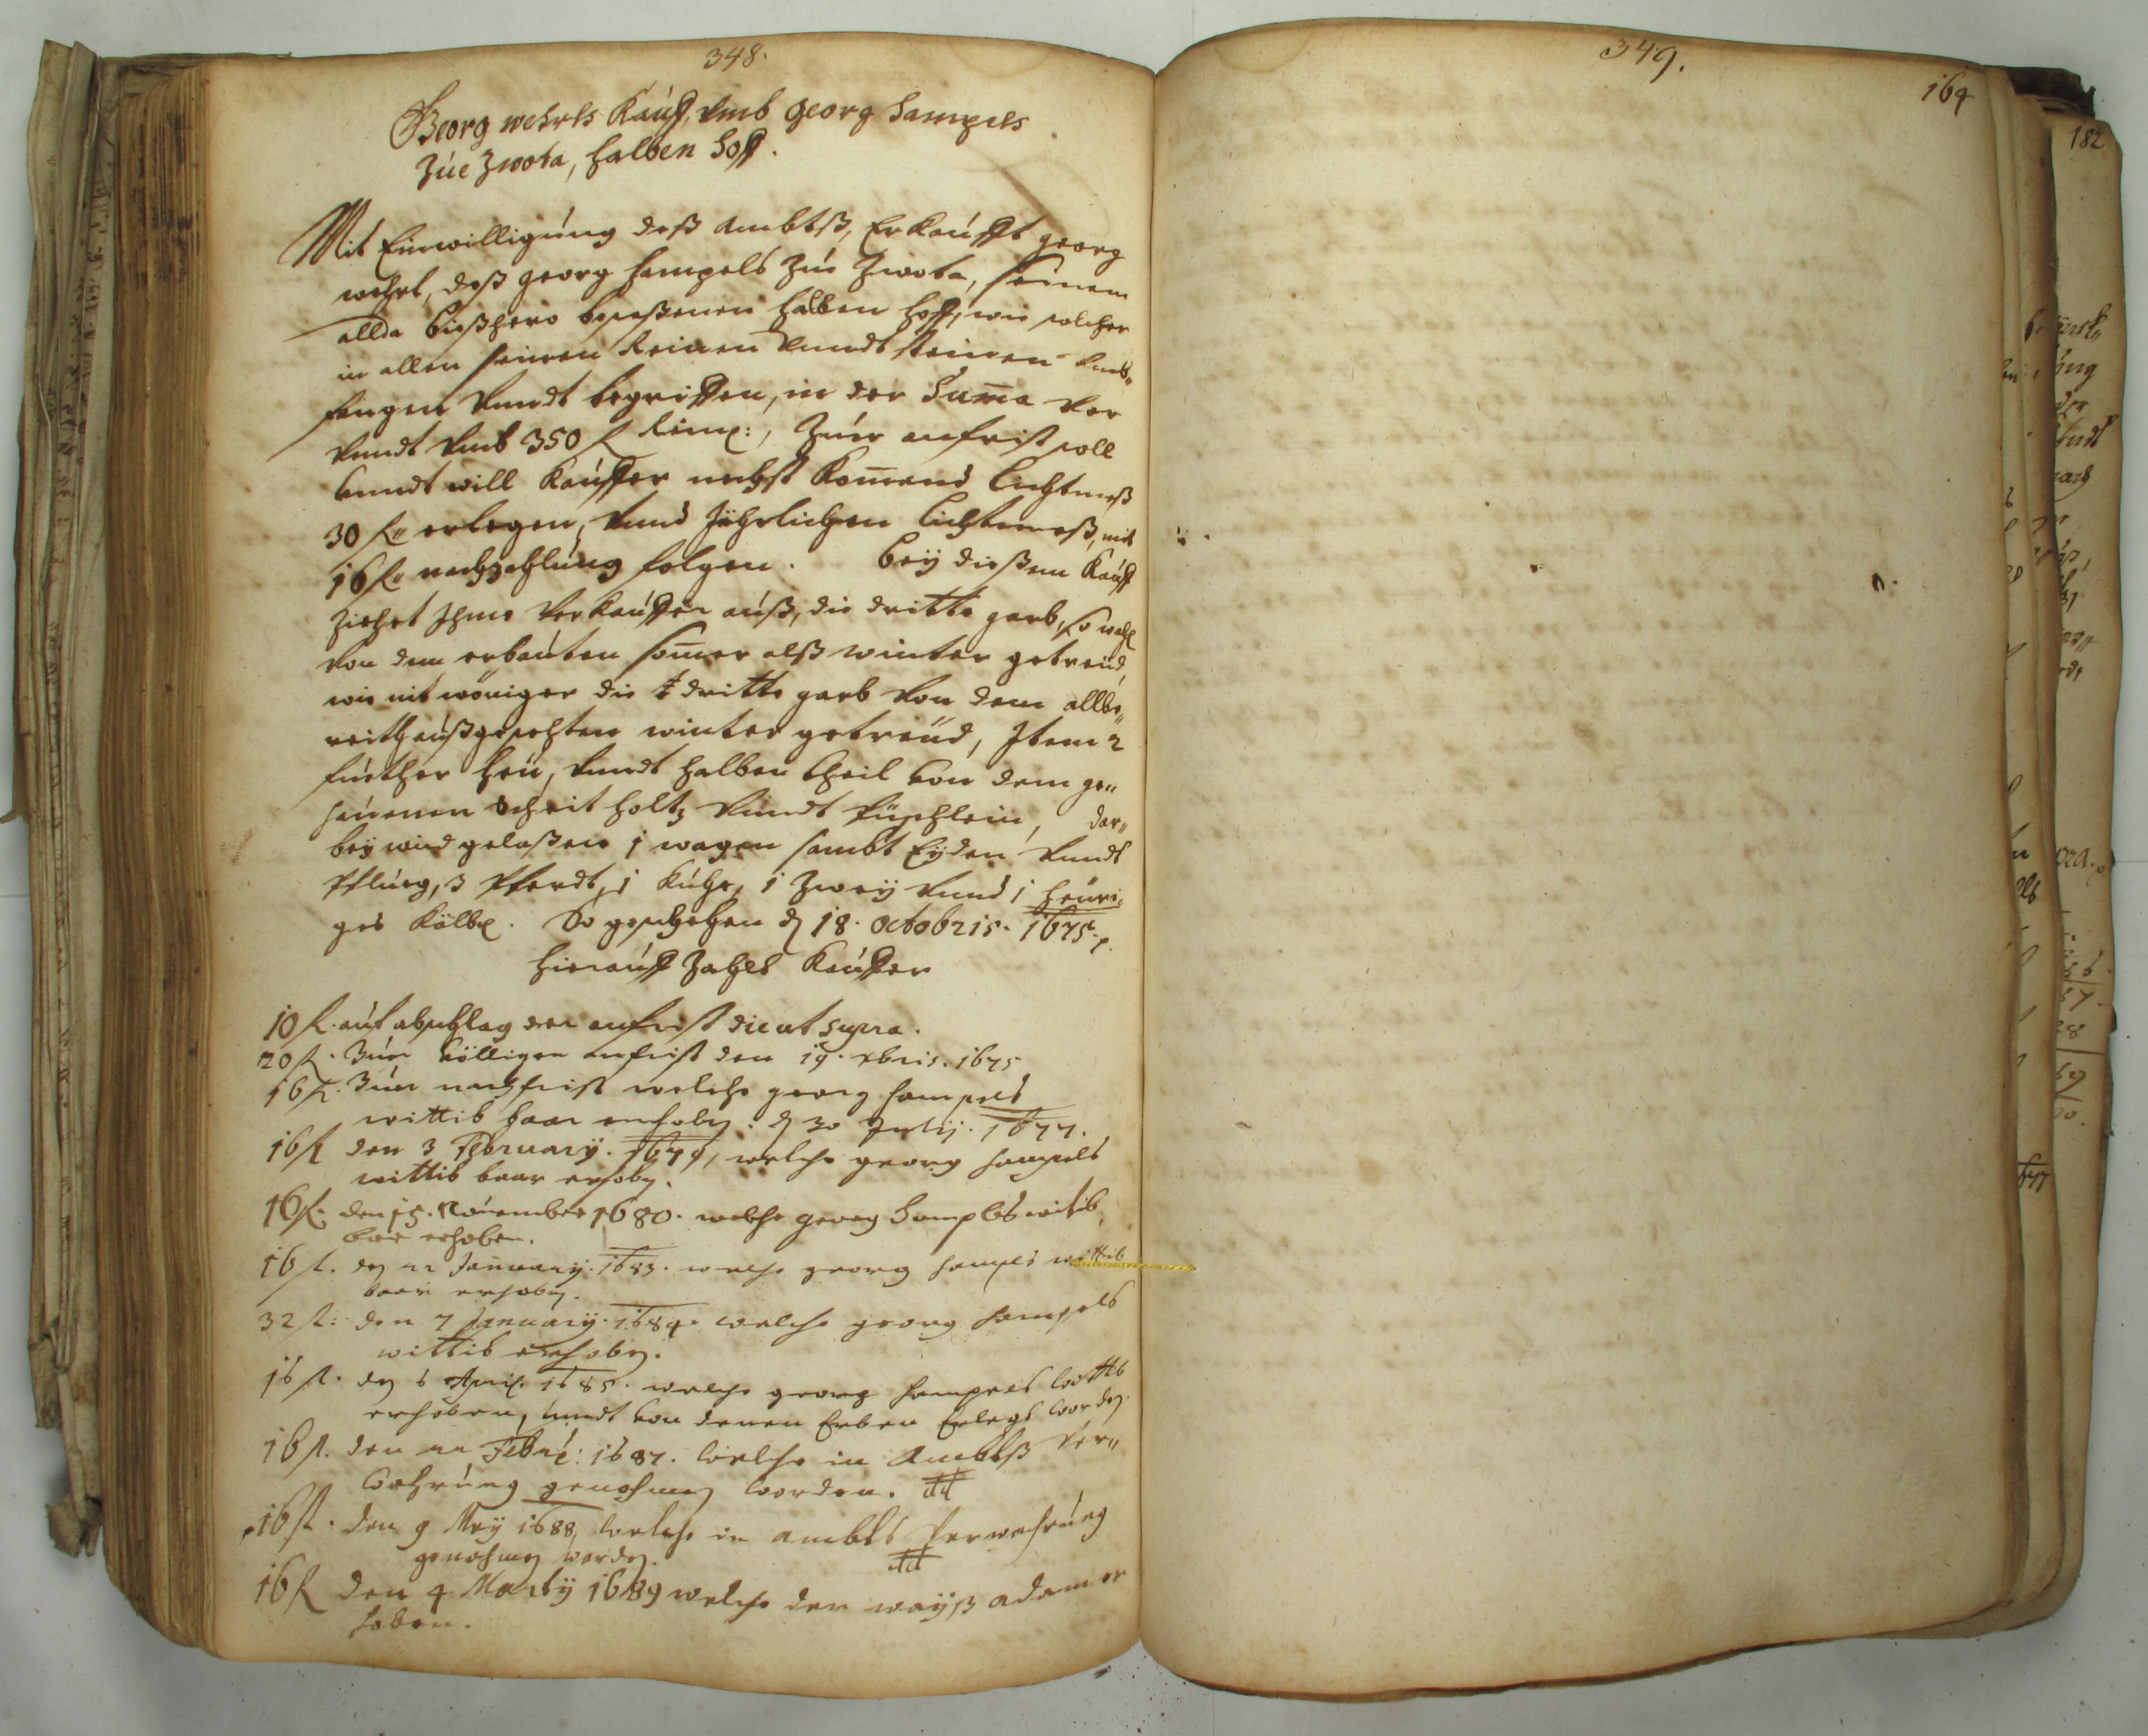 348.
Georg wehrls Kauff, vmb Georg Hampels
Zúe Zwota, halben Hoff.
Mit Einwilligúng deß Ambtß, Erkaúfft Georg
wehrl, deß Georg Hampels Zúe Zwota, seinem
allda bießhero beseßenen halben Hoff, wie solcher
in allen seinen Reinen vnndt steinen vmb„
fangen vnndt begriffen, in der Suma vor
vnndt vmb 350 f Reinl:, Zúer anfrist soll
vnndt will Kaúffer nechst Komend Lichtmeß
30 f„ erlegen, vnnd Jährlichen Lichtmeß, mit
16 f„ nachzahlúng folgen. Beÿ dießem Kaúff
Ziehet Ihme verkaúffer aúß, die dritte garb, so wohl
von dem erbaúten somer alß winter getreüd,
wie nit wöniger die dritte garb von dem allbe„
reith aúßgesehten winter getreüd, Item 2
fúether heú, vnndt halben theil von dem ge„
haúenen Scheit holtz vnndt Püschlein, dar„
beÿ wird gelaßen 1 wagen sambt Eÿden vnndt
Pflúeg, 3 Pferdt, 1 Kúhe, 1 Zweÿ vnnd 1 heüri„
ges Kälbl. So geschehen d 18. Octobris. 1675.
Hieraúff Zahlt Kaúffer
10 f. auf abschlag der anfrist die ut supra.
20 f. Zúer völligen anfrist den 19. xbris. 1675
16 f. Zúer nachfrist welche georg Hampels
wittib baar erhoben. d 30 Julij. 1677.
16 f den 3 Februarÿ. 1679, welche georg Hampels
wittib baar erhoben.
16 f. den 15. November 1680. welche georg Hampels witib
bar erhoben.
16 f. den 22 Januarÿ. 1683. welche georg Hampels wittib
baar erhoben.
32 f: den 7 Januarÿ. 1684. welche georg Hampels
wittib erhoben.
16 f. den 6 April. 1685. welche georg Hampels wittib
erhoben, vnndt von denen Erben Erlegt worden.
16 f. den 22 Febru: 1687. welche in Ambtß Ver„
wahrúng genohmen worden.
16 f. den 9 Meÿ 1688, welche in ambts Verwahrúng
genohmen worden.
16 f den 4 Martÿ 1689 welche der waÿß adam er
hoben.
349.
164
182